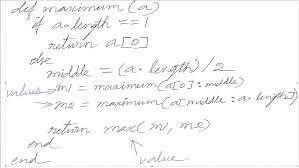 def maximum (a)
if a.length == 1
return a[0]
else
middle = (a.length)/2
values → m1 = maximum(a[0]: middle)
m2 = maximum(a[middle : a.length])
return max(m1, m2)
end
end
value